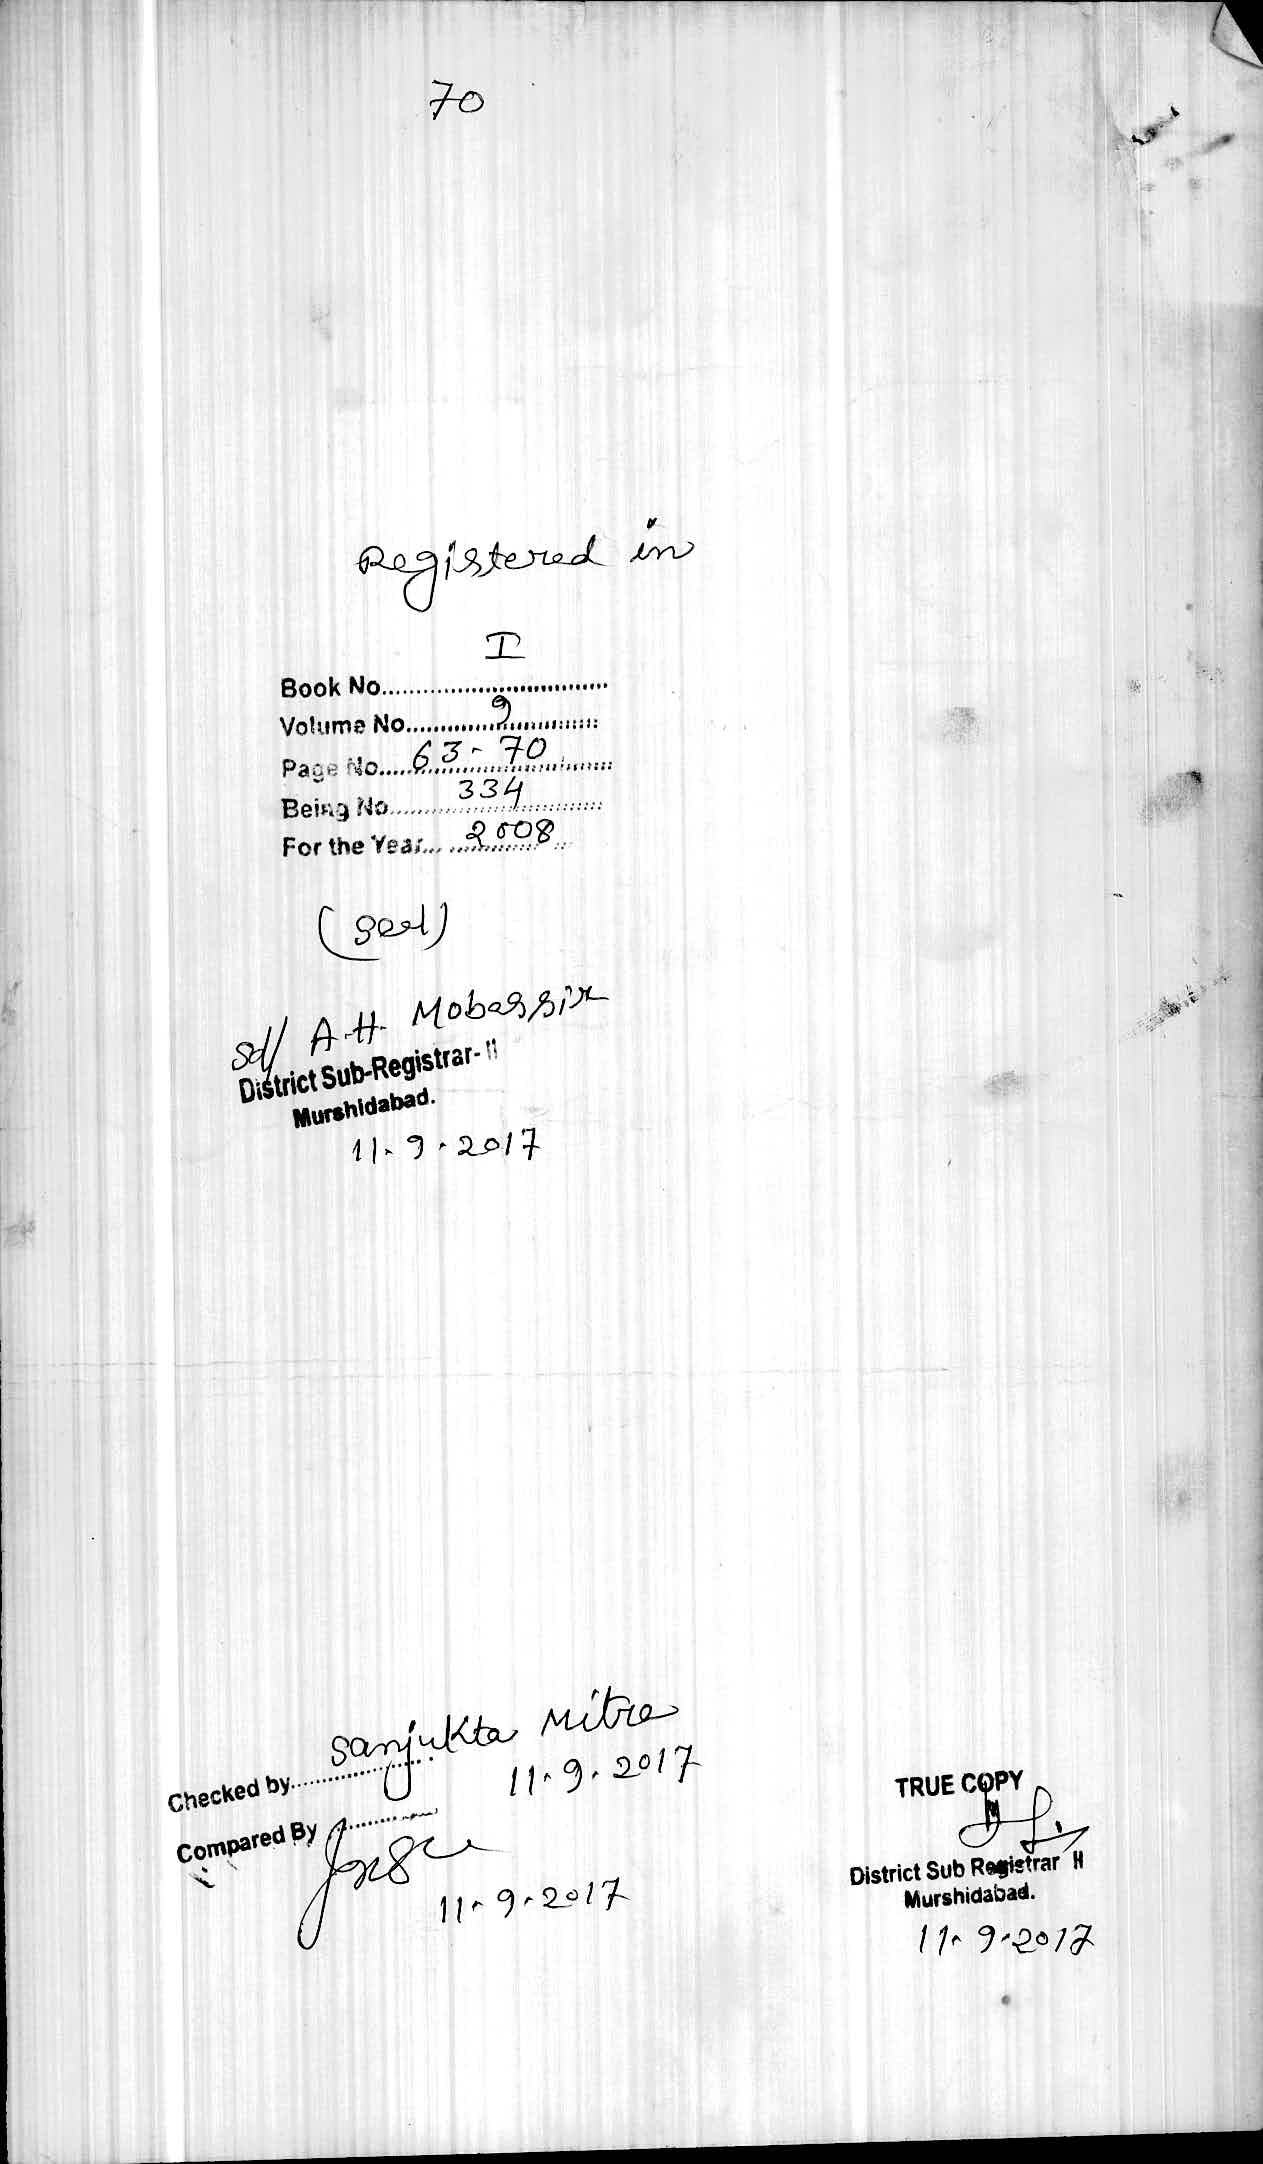 70
Registered in
I
Book No..................................
Volume No............9................
Page No.....63-70..............
Being No........334................
For the Year... 2008
(Seal)
Sd/ A.H. Mobassir
District Sub-Registrar-II
Murshidabad.
11.9.2017
Sanjukta Mitra
Checked by................... 11.9.2017
Compared By ............
11.9.2017
TRUE COPY
District Sub Registrar II
Murshidabad.
11.9.2017